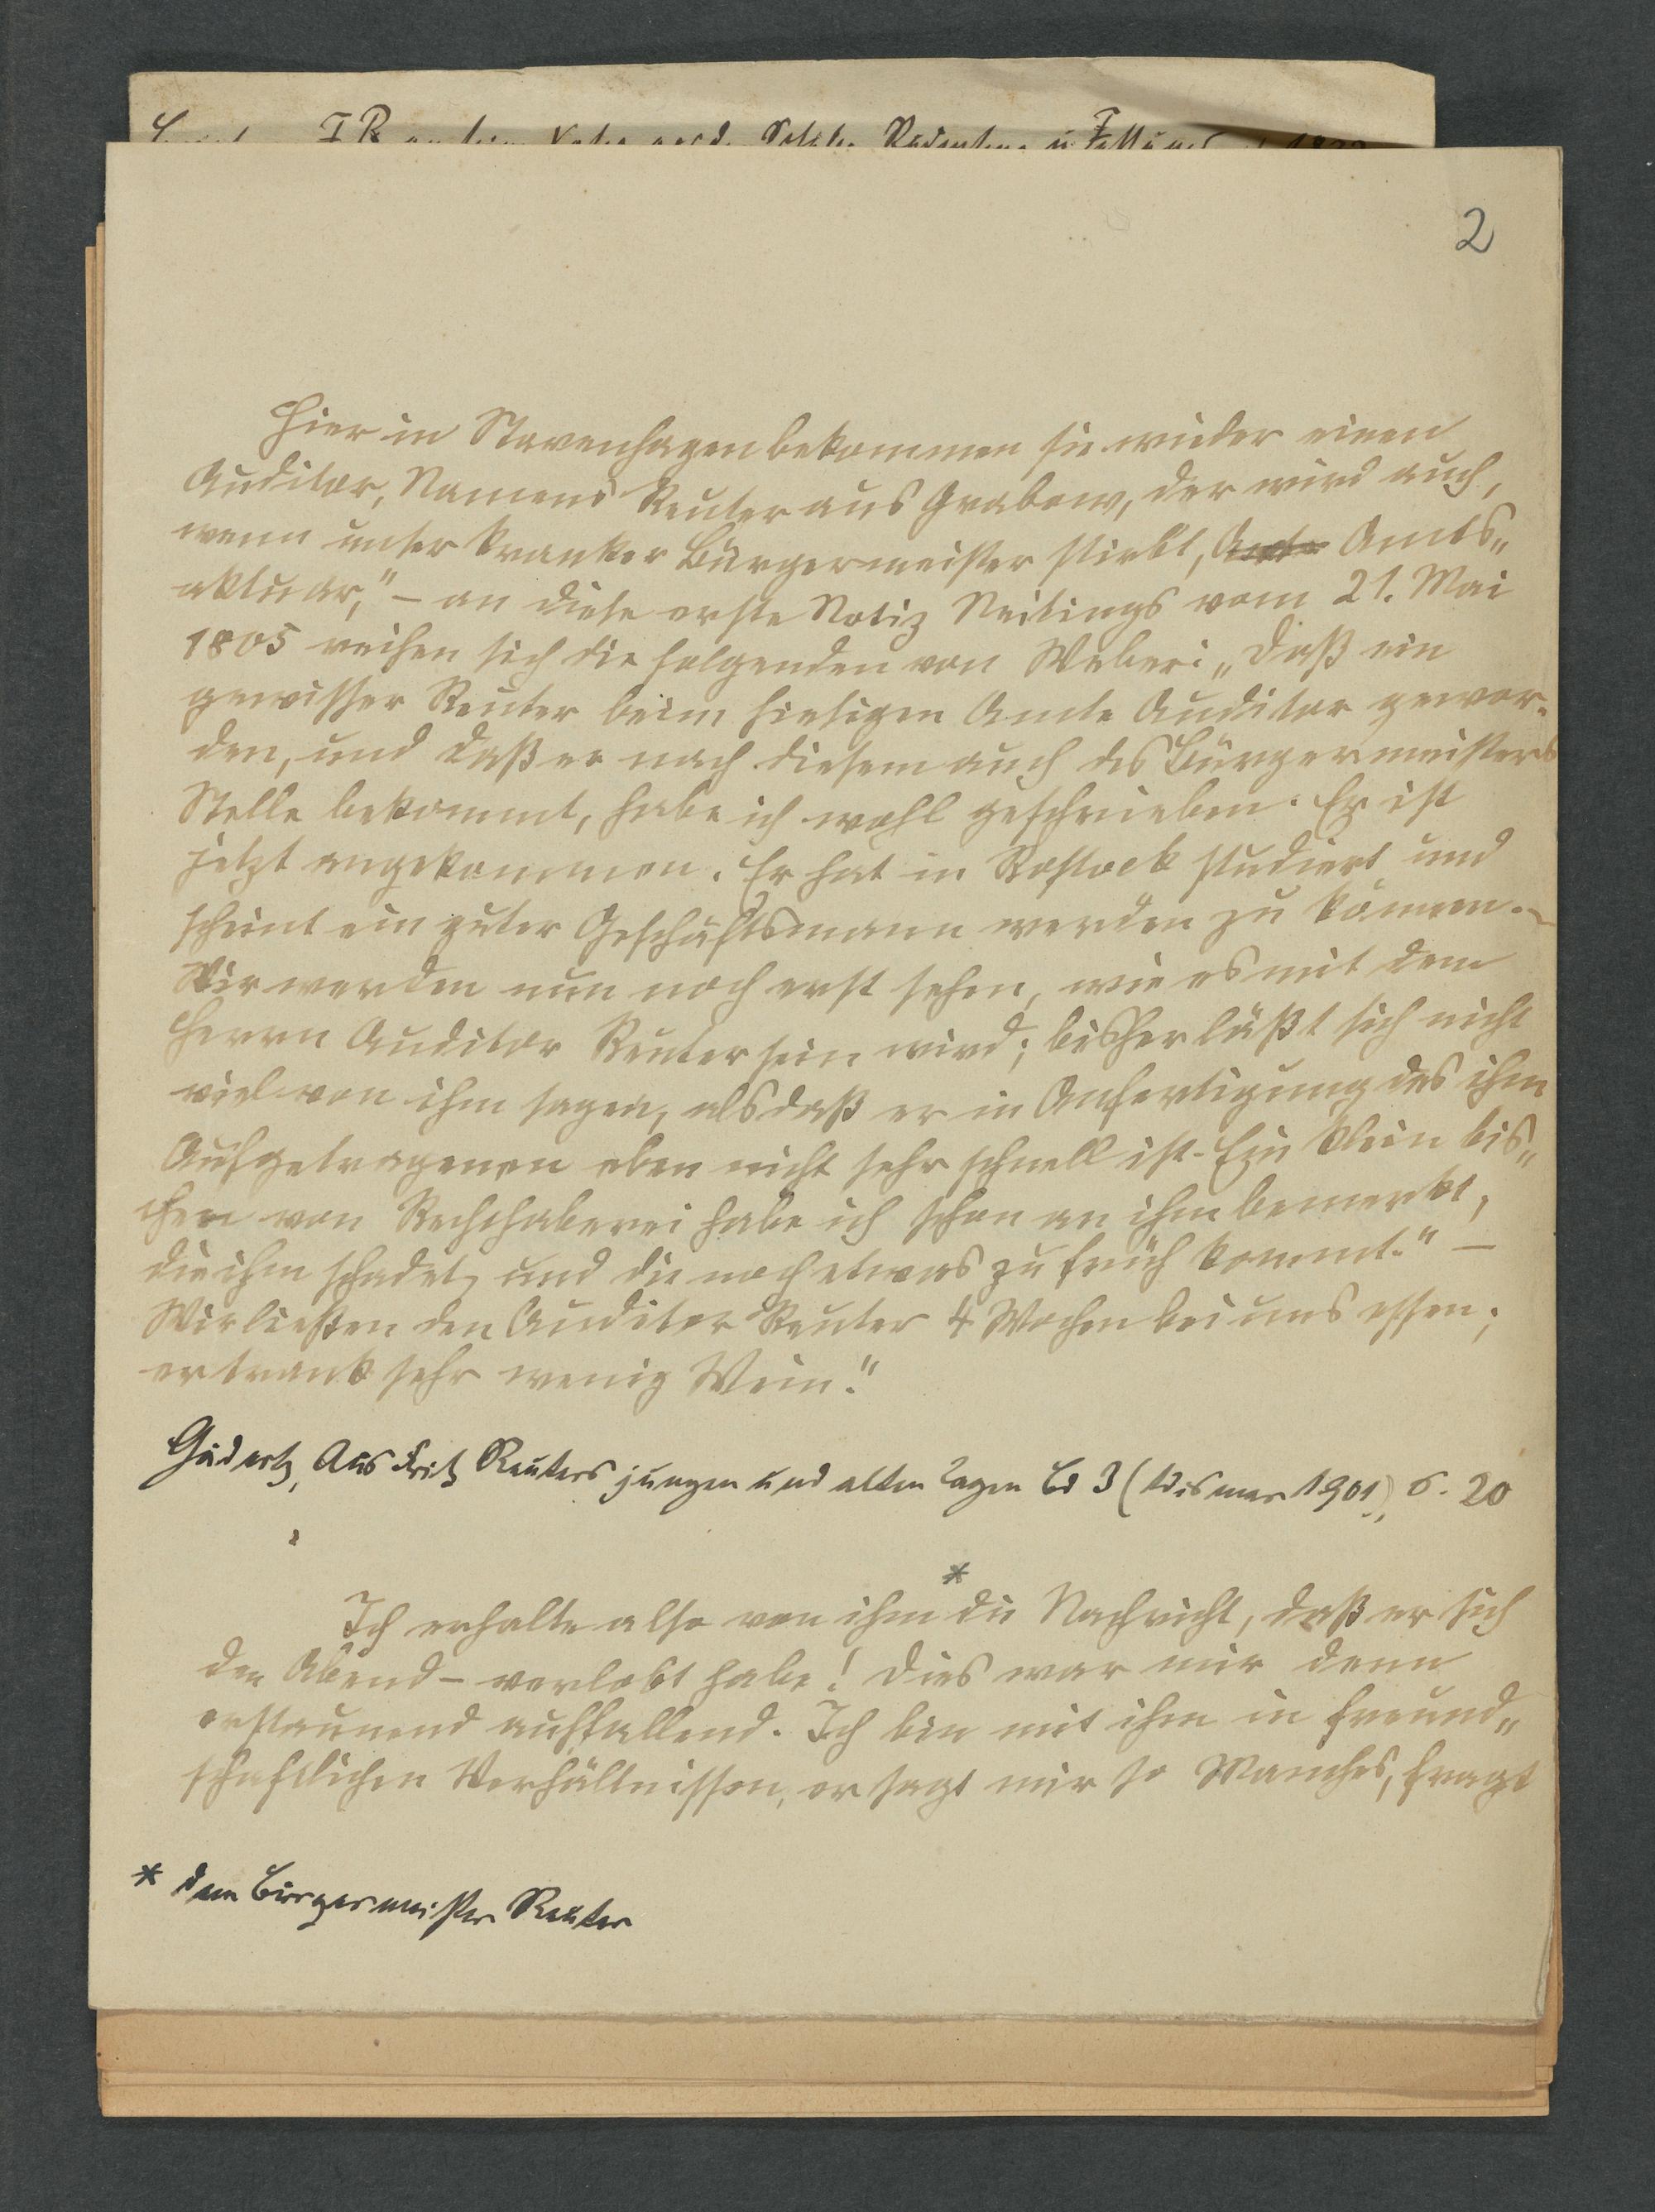 2
Hier in Stavenhagen bekommen sie wieder einen
Auditor, Namens Reuter aus Grabow, der wird auch,
wenn unser kranker Bürgermeister stirbt, Amts„
aktuar,“ – an diese erste Notiz Neitings vom 21. Mai
1805 reihen sich die folgenden von Weber: „Daß ein
gewisser Reuter beim hiesigen Amte Auditor gewor-
den, und daß er nach diesem auch des Bürgermeisters
Stelle bekommt, habe ich wohl geschrieben. Er ist
jetzt angekommen. Er hat in Rostock studiert und
scheint ein guter Geschäftsmann werden zu können. –
Wir werden nun noch erst sehen, wie es mit dem
Herrn Auditor Reuter sein wird; bisher läßt sich nicht
viel von ihm sagen, als daß er in Anfertigung des ihm
Aufgetragenen eben nicht sehr schnell ist. Ein klein bis„
chen von Rechthaberei habe ich schon an ihm bemerkt,
die ihm schadet, und die noch etwas zu früh kommt.“ –
Wir ließen den Auditor Reuter 4 Wochen bei uns essen;
er trank sehr wenig Wein.“
Gaedertz, Aus Fritz Reuters jungen und alten Tagen Bd 3 (Wismar 1901), S. 20
Ich erhalte also von ihm * die Nachricht, daß er sich
den Abend – verlobt habe! Dies war mir denn
erstaunend auffallend. Ich bin mit ihm in freund„
schaftlichen Verhältnissen, er sagt mir so Manches, fragt
* dem Bürgermeister Reuter